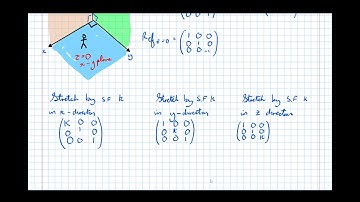 Ref z=0 = (1 0 0
0 1 0
0 0 -1)
x
z=0
x-y plane
y
Stretch by S.F k
in x-direction
(K 0 0
0 1 0
0 0 1)
Stretch by S.F k
in y-direction
(1 0 0
0 K 0
0 0 1)
Stretch by S.F k
in z direction
(1 0 0
0 1 0
0 0 K)